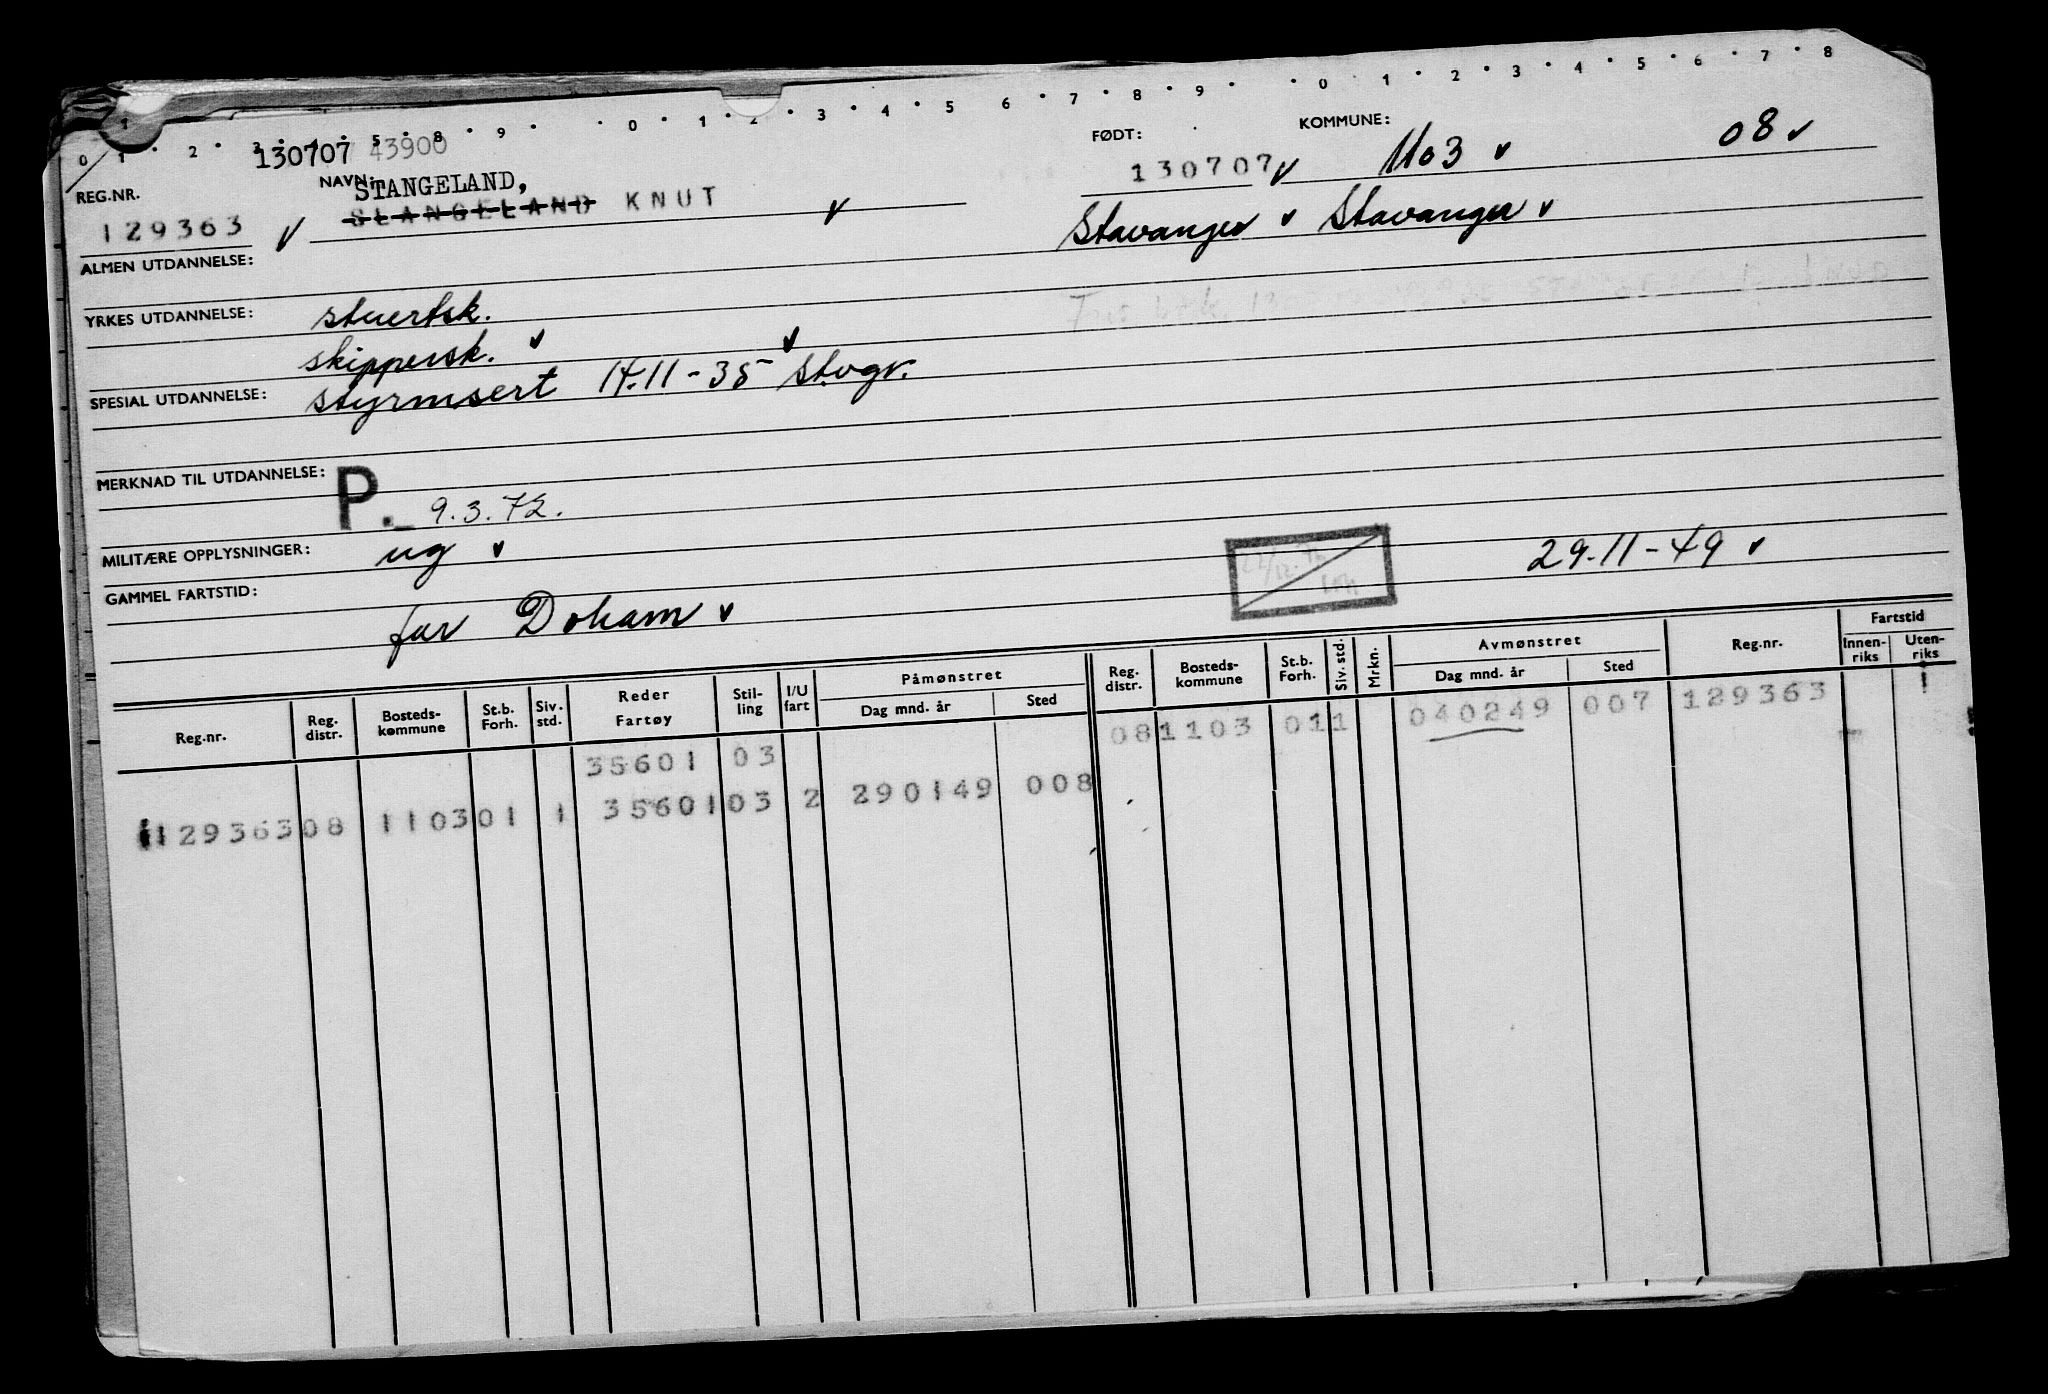 0 1 2 3 4 5 6 7 8 9 0 1 2 3 4 5 6 7 8
0 1 2 3 5 8 9
130707 43900
REG.NR.
NAVN:
STANGELAND,
129363
SLANGELAND KNUT
FØDT:
KOMMUNE:
130707
1103
08
Stavanger Stavanger
ALMEN UTDANNELSE:
YRKES UTDANNELSE:
stuertsk.
skippersk.
SPESIAL UTDANNELSE:
styrmsert 14.11-35 Stvgr.
MERKNAD TIL UTDANNELSE:
P. 9.3.72.
MILITÆRE OPPLYSNINGER:
ug
GAMMEL FARTSTID:
29.11-49
far Doham
Reg.nr. Reg. distr. Bosteds-kommune St.b. Forh. Siv. std. Reder Fartøy Stil-ling I/U fart Påmønstret Dag mnd. år Sted Reg. distr. Bosteds-kommune St.b. Forh. Siv. std. Mrkn. Avmønstret Dag mnd. år Sted Reg.nr. Fartstid Innen-riks Uten-riks
35601 03 08 1103 01 1 040249 007 129363
129363 08 1103 01 1 35601 03 2 290149 008